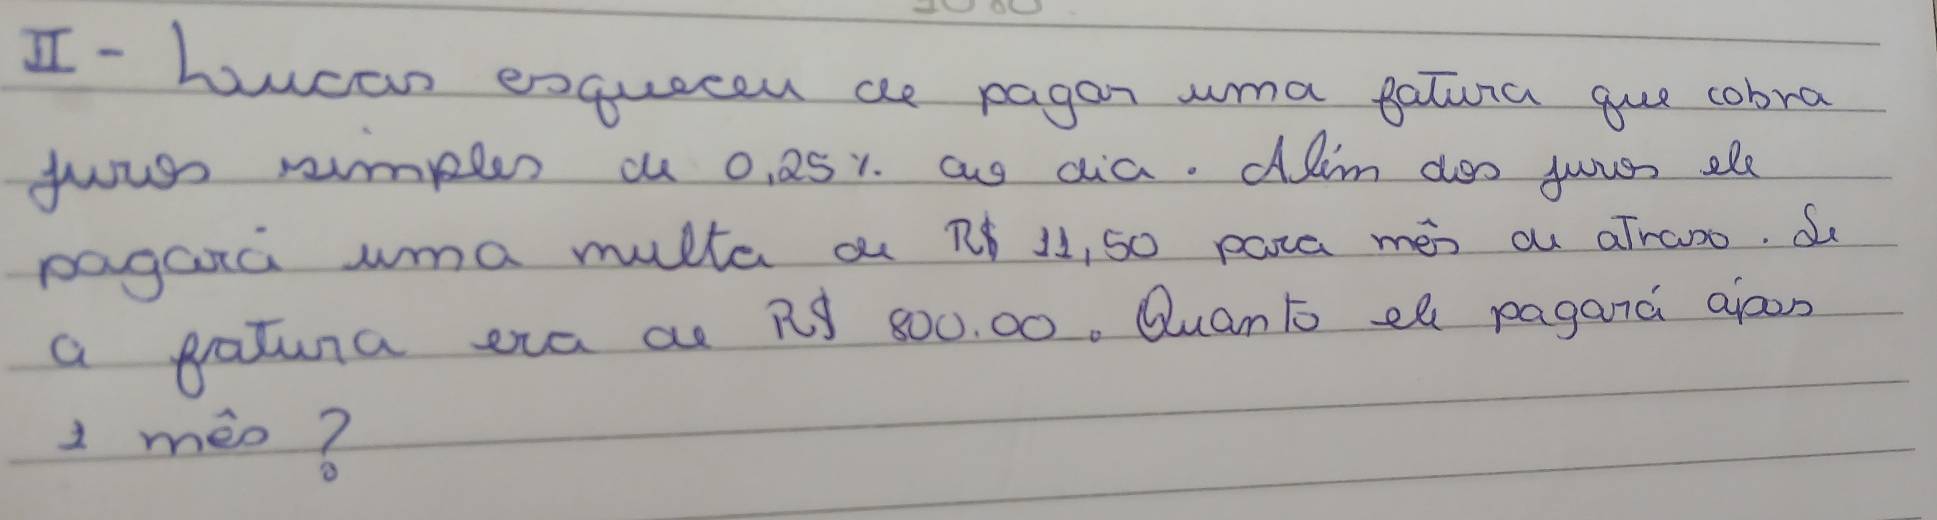 II - Lucas esqueceu de pagar uma fatura que cobra
juros simples de 0,25% ao dia. Além dos juros ele
pagará uma multa de R$ 11,50 para mês de atraso. Se
a fatura era de R$ 800.00. Quanto ele pagará após
1 mês?